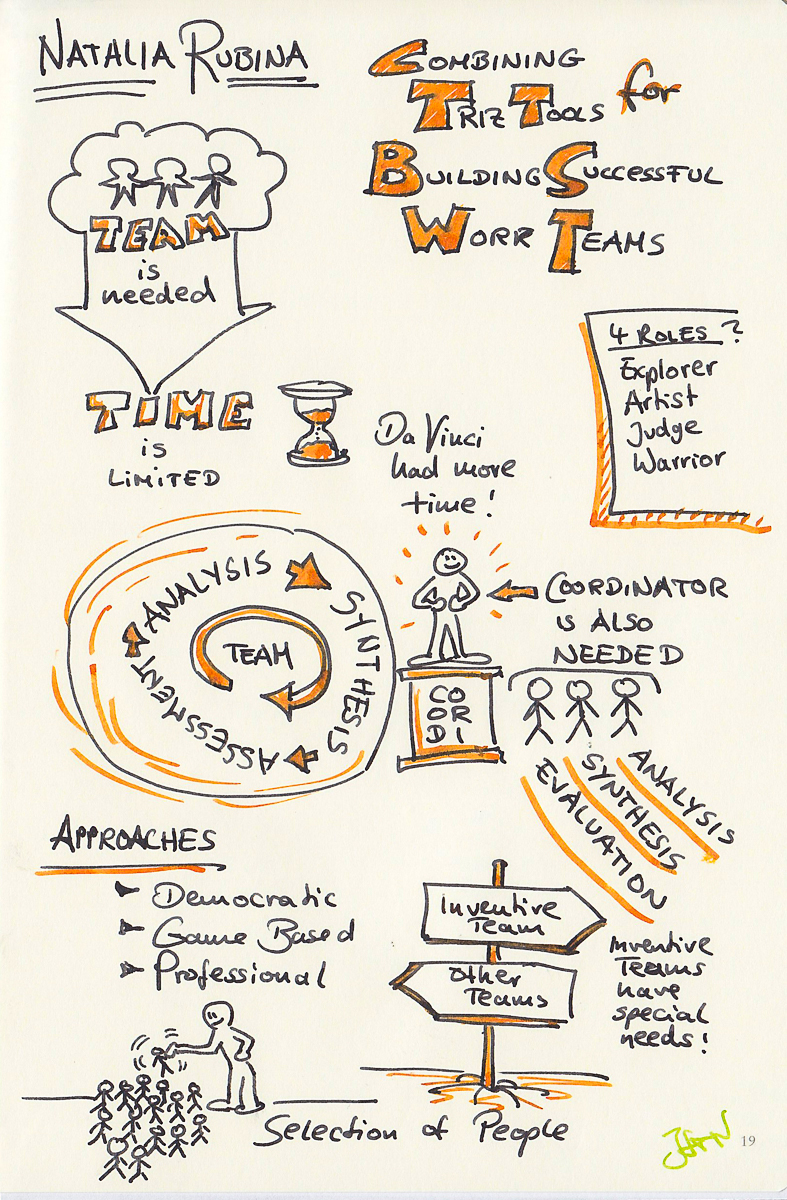 NATALIA RUBINA
COMBINING
TRIZ TOOLS for
BUILDING SUCCESSFUL
WORK TEAMS
TEAM
is
needed
TIME
is
LIMITED
4 ROLES ?
Explorer
Artist
Judge
Warrior
Da Vinci
had more
time!
ANALYSIS
SYNTHESIS
ASSESSMENT
TEAM
CO
OR
DI
COORDINATOR
is ALSO
NEEDED
ANALYSIS
SYNTHESIS
EVALUATION
APPROACHES
Democratic
Game Based
Professional
Inventive
Team
other
Teams
Inventive
Teams
have
special
needs!
Selection of People
19